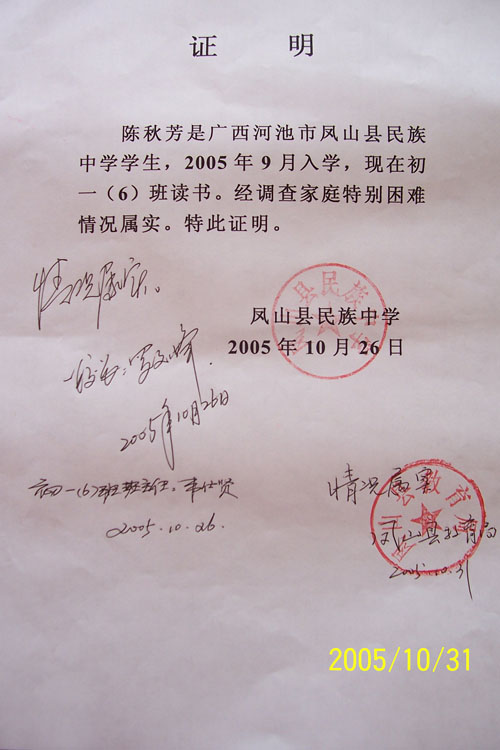 证 明
陈秋芳是广西河池市凤山县民族
中学学生，2005 年 9 月入学，现在初
一（6）班读书。经调查家庭特别困难
情况属实。特此证明。
情况属实。
县民族中
凤山县民族中学
2005 年 10 月 26 日
校长：
2005年10月26日
初一(6)班班主任：韦仕贤
2005.10.26.
情况属实
县教育
凤山县教育局
2005.10.31
2005/10/31